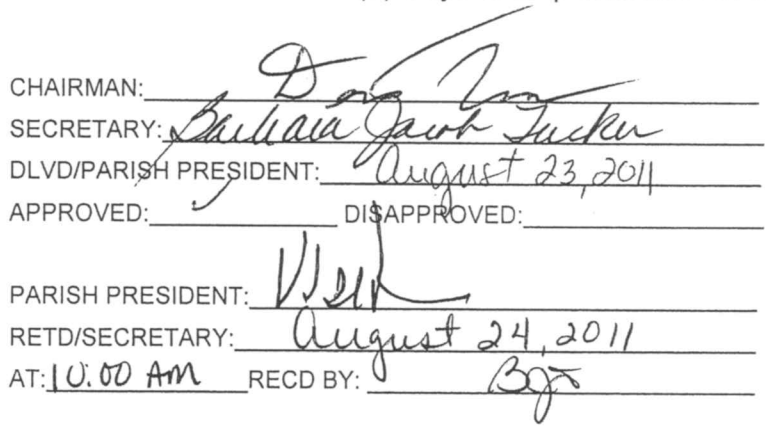 CHAIRMAN:
SECRETARY: Barbara Jacob Tucker
DLVD/PARISH PRESIDENT: August 23, 2011
APPROVED: ✓ DISAPPROVED:
PARISH PRESIDENT:
RETD/SECRETARY: August 24, 2011
AT: 10:00 AM RECD BY: BJT